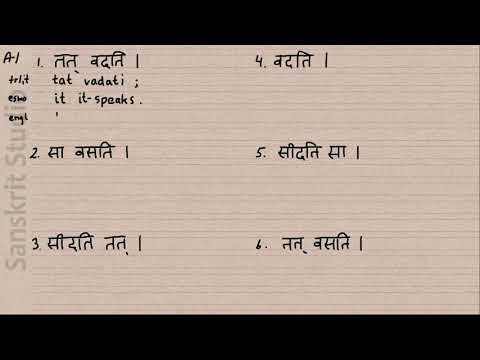 A-1 1. तत् वदति | 4. वदति |
trlit tat vadati ;
it it-speaks.
engl
2. सा वसति | 5. सीदति सा |
3. सीदति तत् | 6. तत् वसति |
Sanskrit Studio